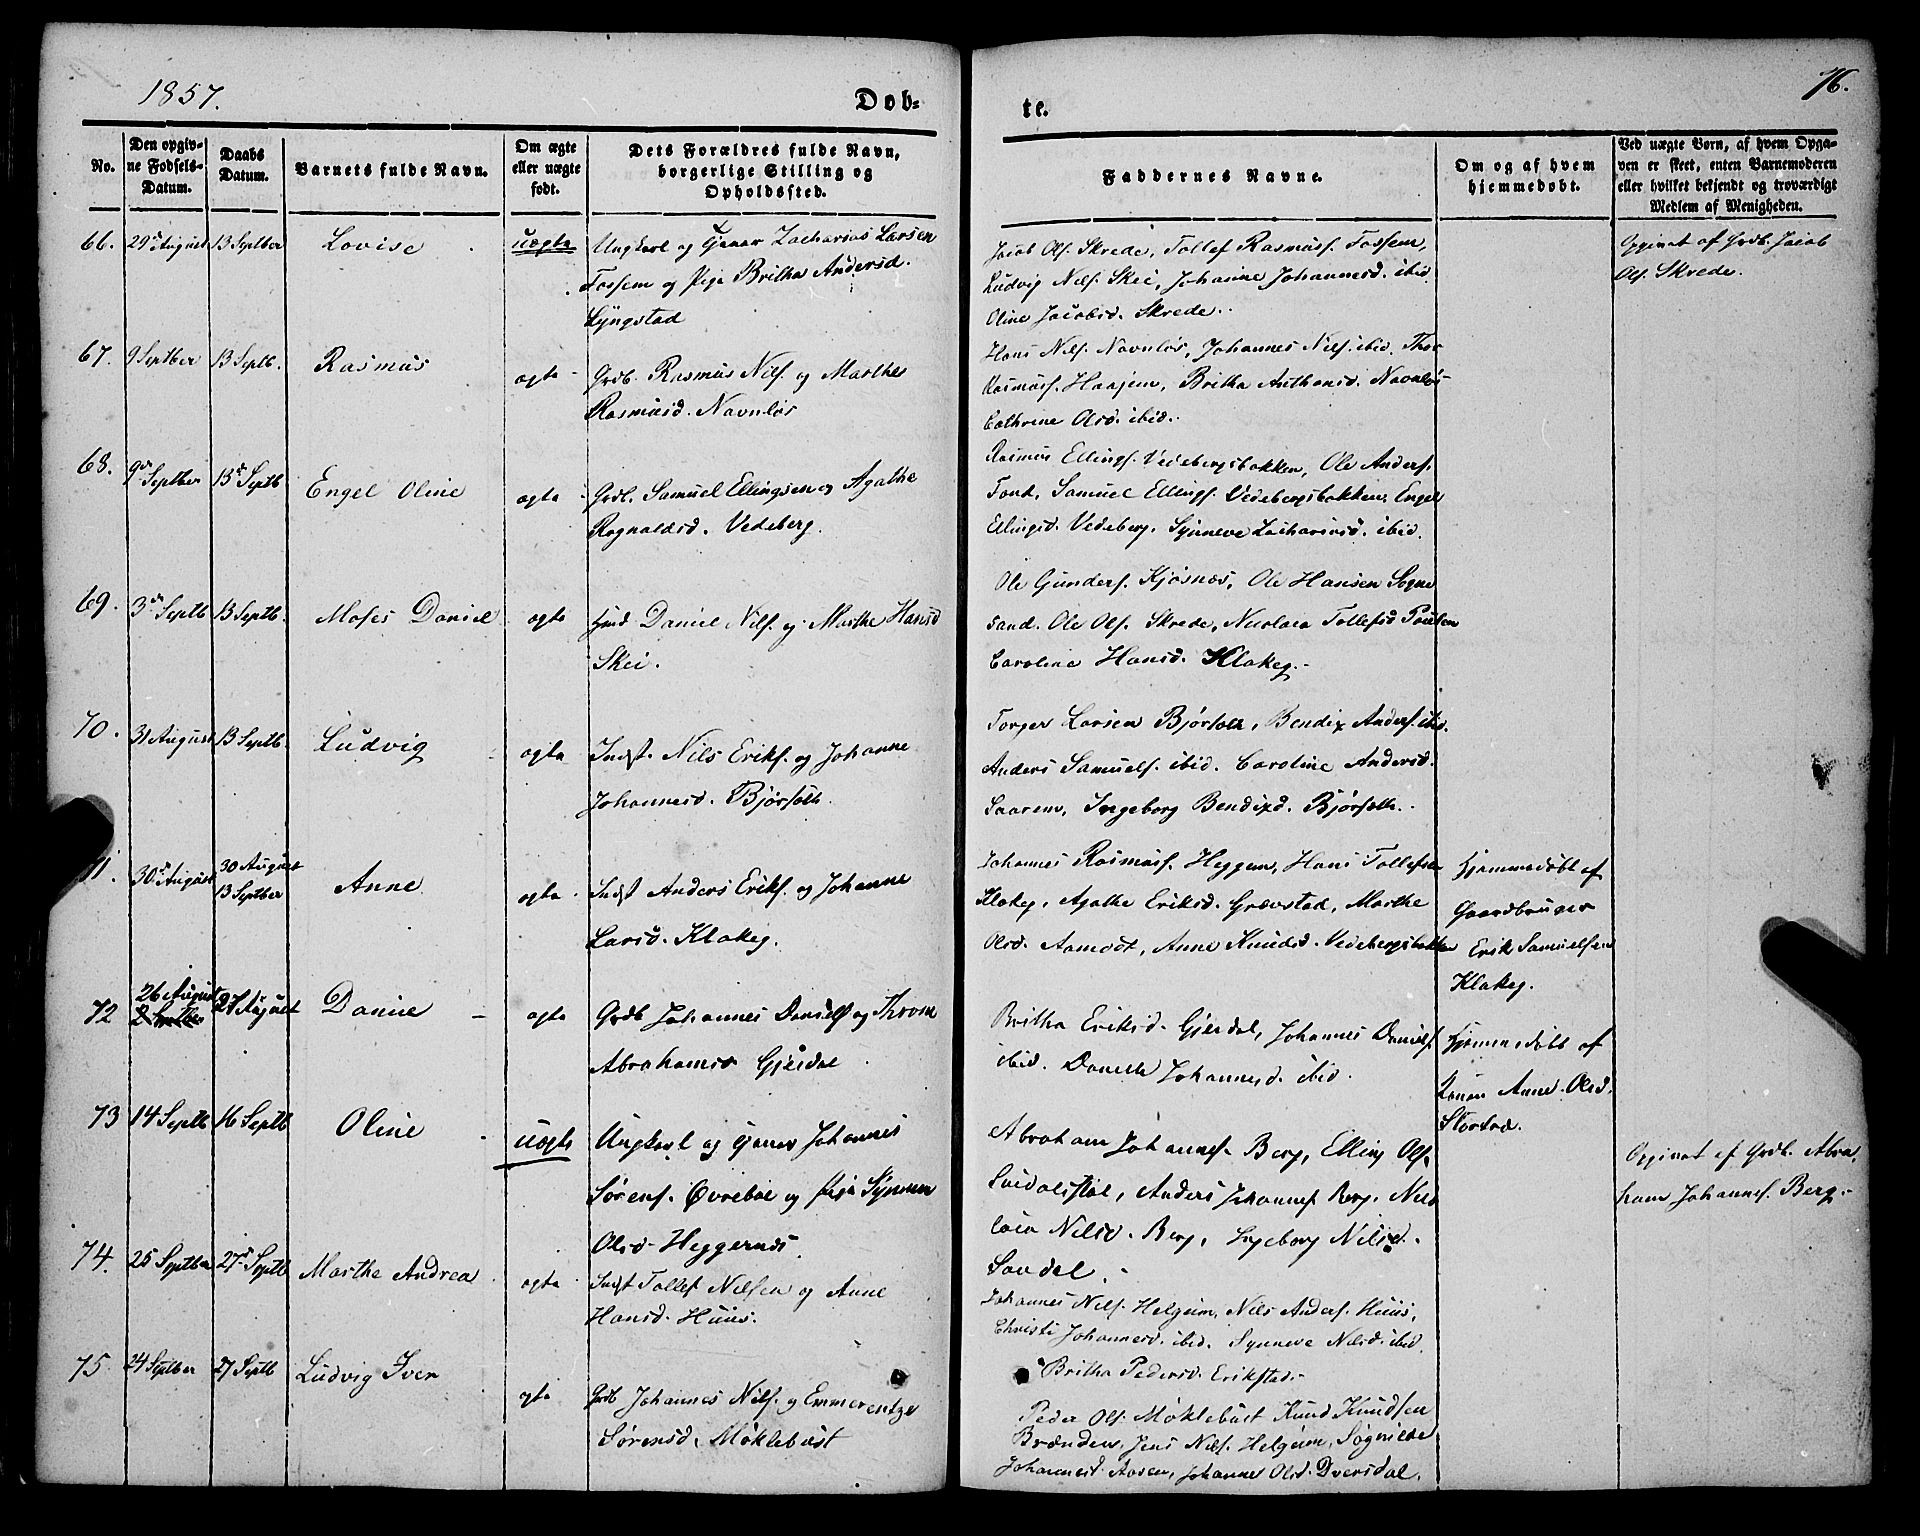 1857.
Døb=
te.
76.
No.
Den opgiv-
ne Fødsels-
Datum.
Daabs
Datum.
Barnets fulde Navn.
Om ægte
eller uægte
født.
Dets Forældres fulde Navn,
borgerlige Stilling og
Opholdssted.
Faddernes Navne.
Om og af hvem
hjemmedøbt.
Ved uægte Børn, af hvem Opga-
ven er skeet, enten Barnemoderen
eller hvilket bekjendt og troværdigt
Medlem af Menigheden.
66. 29de August 13 Septber Lovise uægte Ungkarl og Gjener Zacharias Larsen
Fossem og Pige Britha Andersd.
Lyngstad
Jacob Ols. Skrede, Tollef Rasmusf. Fossem,
Ludvig Nilf. Skei, Johanne Johannesd. ibid
Oline Jacobsd. Skrede.
Opgivet af Grdb. Jacob
Ols. Skrede.
67. 9 Septber 13 Septb. Rasmus ægte Grdb. Rasmus Nilf. og Marthe
Rasmusd. Navnløs
Hans Nilf. Navnløs, Johannes Nilf. ibid. Thor
Rasmusf. Haajem, Britha Anthonsd. Navnløs
Cathrine Olsd. ibid.
68. 9de Septber 13de Septb Engel Oline ægte Grdb. Samuel Ellingsen og Agathe
Rognaldsd. Vedeberg.
Rasmus Ellingf. Vedebergsbakken, Ole Andersf.
Tont, Samuel Ellingf. Vedebergsbakken, Engel
Ellingsd. Vedeberg, Synneve Zachariasd. ibid.
69. 3de Septb 13 Septb. Moses Daniel ægte Hmd Daniel Nilf. og Marthe Hansd
Skei.
Ole Gundersf. Kjøsnæs, Ole Hansen Sogne
sand. Ole Olf. Skrede, Nicolaia Tollefsd
Caroline Hansd. Klakeg.
70. 31 August 13 Septb. Ludvig ægte Indst. Nils Erikf. og Johanne
Johannesd. Bjørset.
Torger Larsen Bjørset, Bendix Andersf. ibid.
Anders Samuelf. ibid. Caroline Andersd.
Saarem, Ingeborg Bendixd. Bjørset.
71. 30te August 30 August
13 Septber Anne ægte Indst Anders Erikf. og Johanne
Larsd. Klakeg.
Johannes Rasmusf. Heggem, Hans Tollefsen
Klakeg, Agathe Eriksd. Grøvstad, Marthe
Olsd. Aamodt, Anne Knudsd. Vedebergsbakken
Hjemmedøbt af
Gaardbruger
Erik Samuelsen
Klakeg.
72 26 August
2 Septber 27 August Danie ægte Grdb Johannes Danielf og
Abrahamsd Gjerdal
Britha Eriksd. Gjerdal, Johannes Danielf.
ibid. Danielle Johannesd. ibid.
Hjemmedøbt af
Konen Anne Olsd.
Storstad.
73 14 Septb 16 Septb Oline uægte Ungkarl og Gjener Johannes
Sørensf. Øvrebøe og Pige Synneve
Olsd. Heggernæs.
Abraham Johannesf. Berg, Elling Olf.
Anders Johannesf Berg. Nico
laia Nilsd. Berg, Ingeborg Nilsd.
Sandal.
Opgivet af Grdb. Abra
ham Johannesf. Berg.
74. 25 Septber 27de Septb Marthe Andrea ægte Indst Tollef Nilsen og Anne
Hansd. Huus.
Johannes Nilf. Helgum, Nils Andersf. Huus,
Christi Johannesd. ibid. Synneve Nilsd. ibid.
Britha Pedersd. Erikstad.
75. 24 Septber 27 Septb Ludvig Iver ægte Grdb Johannes Nilf. og Emmerentze
Sørensd. Møklebust
Peder Olf. Møklebust Knud Knudsen
Brænden, Jens Nilf. Helgum, Søgnilde
Johannesd. Aasen, Johanne Olsd. Dversdal.